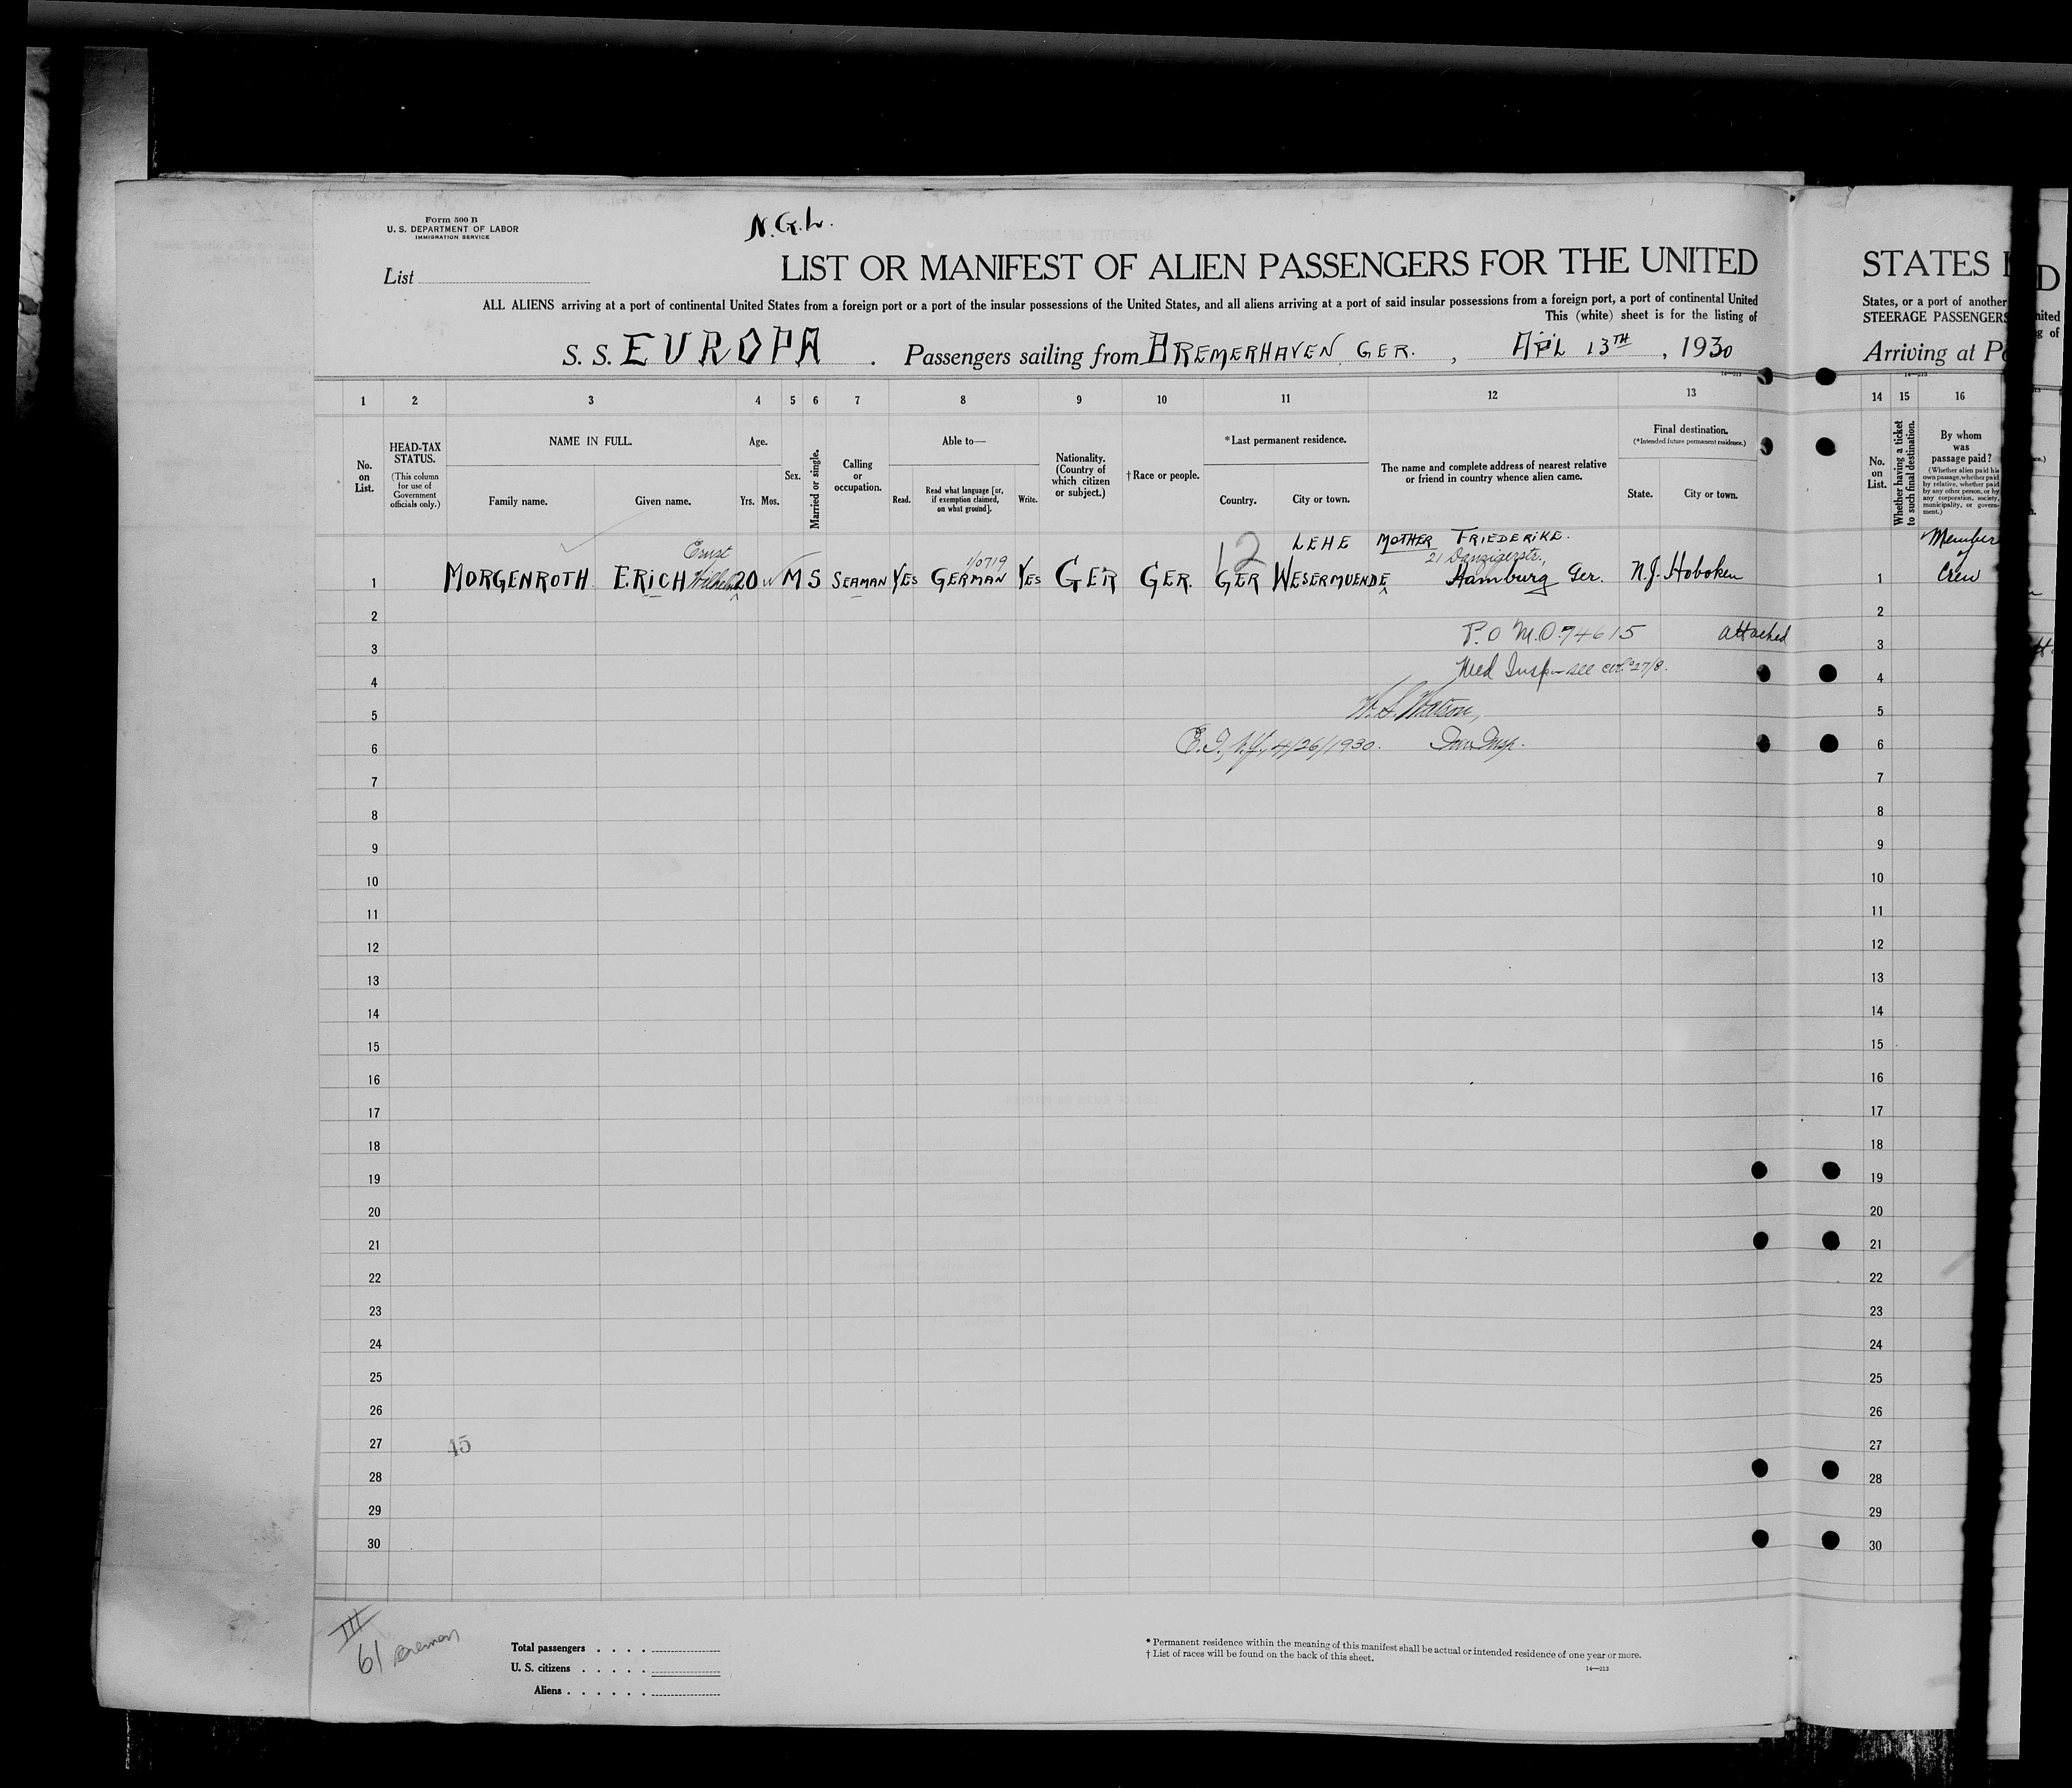 Form 500 B
U. S. DEPARTMENT OF LABOR
IMMIGRATION SERVICE
N.G.L.
List
LIST OR MANIFEST OF ALIEN PASSENGERS FOR THE UNITED
ALL ALIENS arriving at a port of continental United States from a foreign port or a port of the insular possessions of the United States, and all aliens arriving at a port of said insular possessions from a foreign port, a port of continental United
This (white) sheet is for the listing of
S. S. EUROPA . Passengers sailing from BREMERHAVEN GER. , APL 13TH , 1930
14—213
1 2 3 4 5 6 7 8 9 10 11 12 13
No. on List.
HEAD-TAX STATUS.
(This column for use of Government officials only.)
NAME IN FULL.
Family name. Given name.
Age.
Yrs. Mos.
Sex.
Married or single.
Calling or occupation.
Able to—
Read. Read what language [or, if exemption claimed, on what ground]. Write.
Nationality. (Country of which citizen or subject.)
†Race or people.
*Last permanent residence.
Country. City or town.
The name and complete address of nearest relative or friend in country whence alien came.
Final destination.
(*Intended future permanent residence.)
State. City or town.
12 LEHE MOTHER FRIEDERIKE.
Ernst 1/0719 21 Danzigerstr.,
1 MORGENROTH ERICH Wilhelm 20 M S SEAMAN YES GERMAN YES GER GER. GER WESERMUENDE Hamburg Ger. N.J. Hoboken
2
P.O M.O. 74615 attached
3
Med Insp— see col 27/8.
4
5
E.I., N.Y., 4/26/1930. Imm Insp.
6
7
8
9
10
11
12
13
14
15
16
17
18
19
20
21
22
23
24
25
26
27 15
28
29
30
III
61 Bremen
Total passengers . . . .
U. S. citizens . . . . .
Aliens . . . . . .
* Permanent residence within the meaning of this manifest shall be actual or intended residence of one year or more.
† List of races will be found on the back of this sheet.
14—213
STATES
States, or a port of another
STEERAGE PASSENGERS
Arriving at
14—213
14 15 16
No. on List.
Whether having a ticket to such final destination.
By whom was passage paid?
(Whether alien paid his own passage, whether paid by relative, whether paid by any other person, or by any corporation, society, municipality, or government.)
Member
of
1 Crew
2
3
4
5
6
7
8
9
10
11
12
13
14
15
16
17
18
19
20
21
22
23
24
25
26
27
28
29
30
D
nited
g of